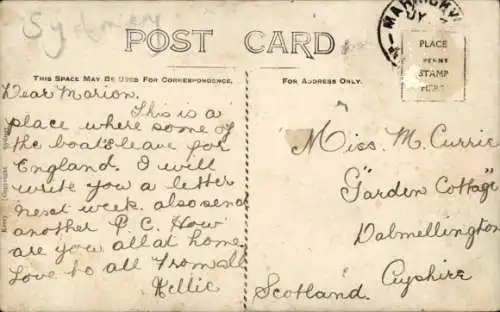 Sydney
POST CARD
THIS SPACE MAY BE USED FOR CORRESPONDENCE.
FOR ADDRESS ONLY.
PLACE
PENNY
STAMP
HERE
Dear Marion.
This is a
place where some of
the boats leave for
England. I will
write you a letter
next week. also send
another P.C. How
are you all at home.
Love to all from all
Nellie
Miss. M. Currie
"Garden Cottage"
Dalmellington
Ayshire
Scotland.